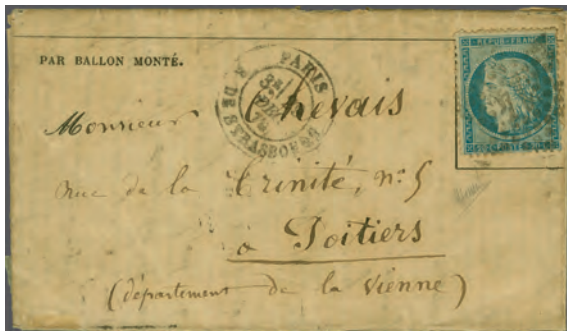 PAR BALLON MONTÉ.
PARIS
R. DE STRASBOURG
REPUB. FRANC.
Monsieur Chevais
rue de la Trinité, n:° 5
à Poitiers
(département de la Vienne)